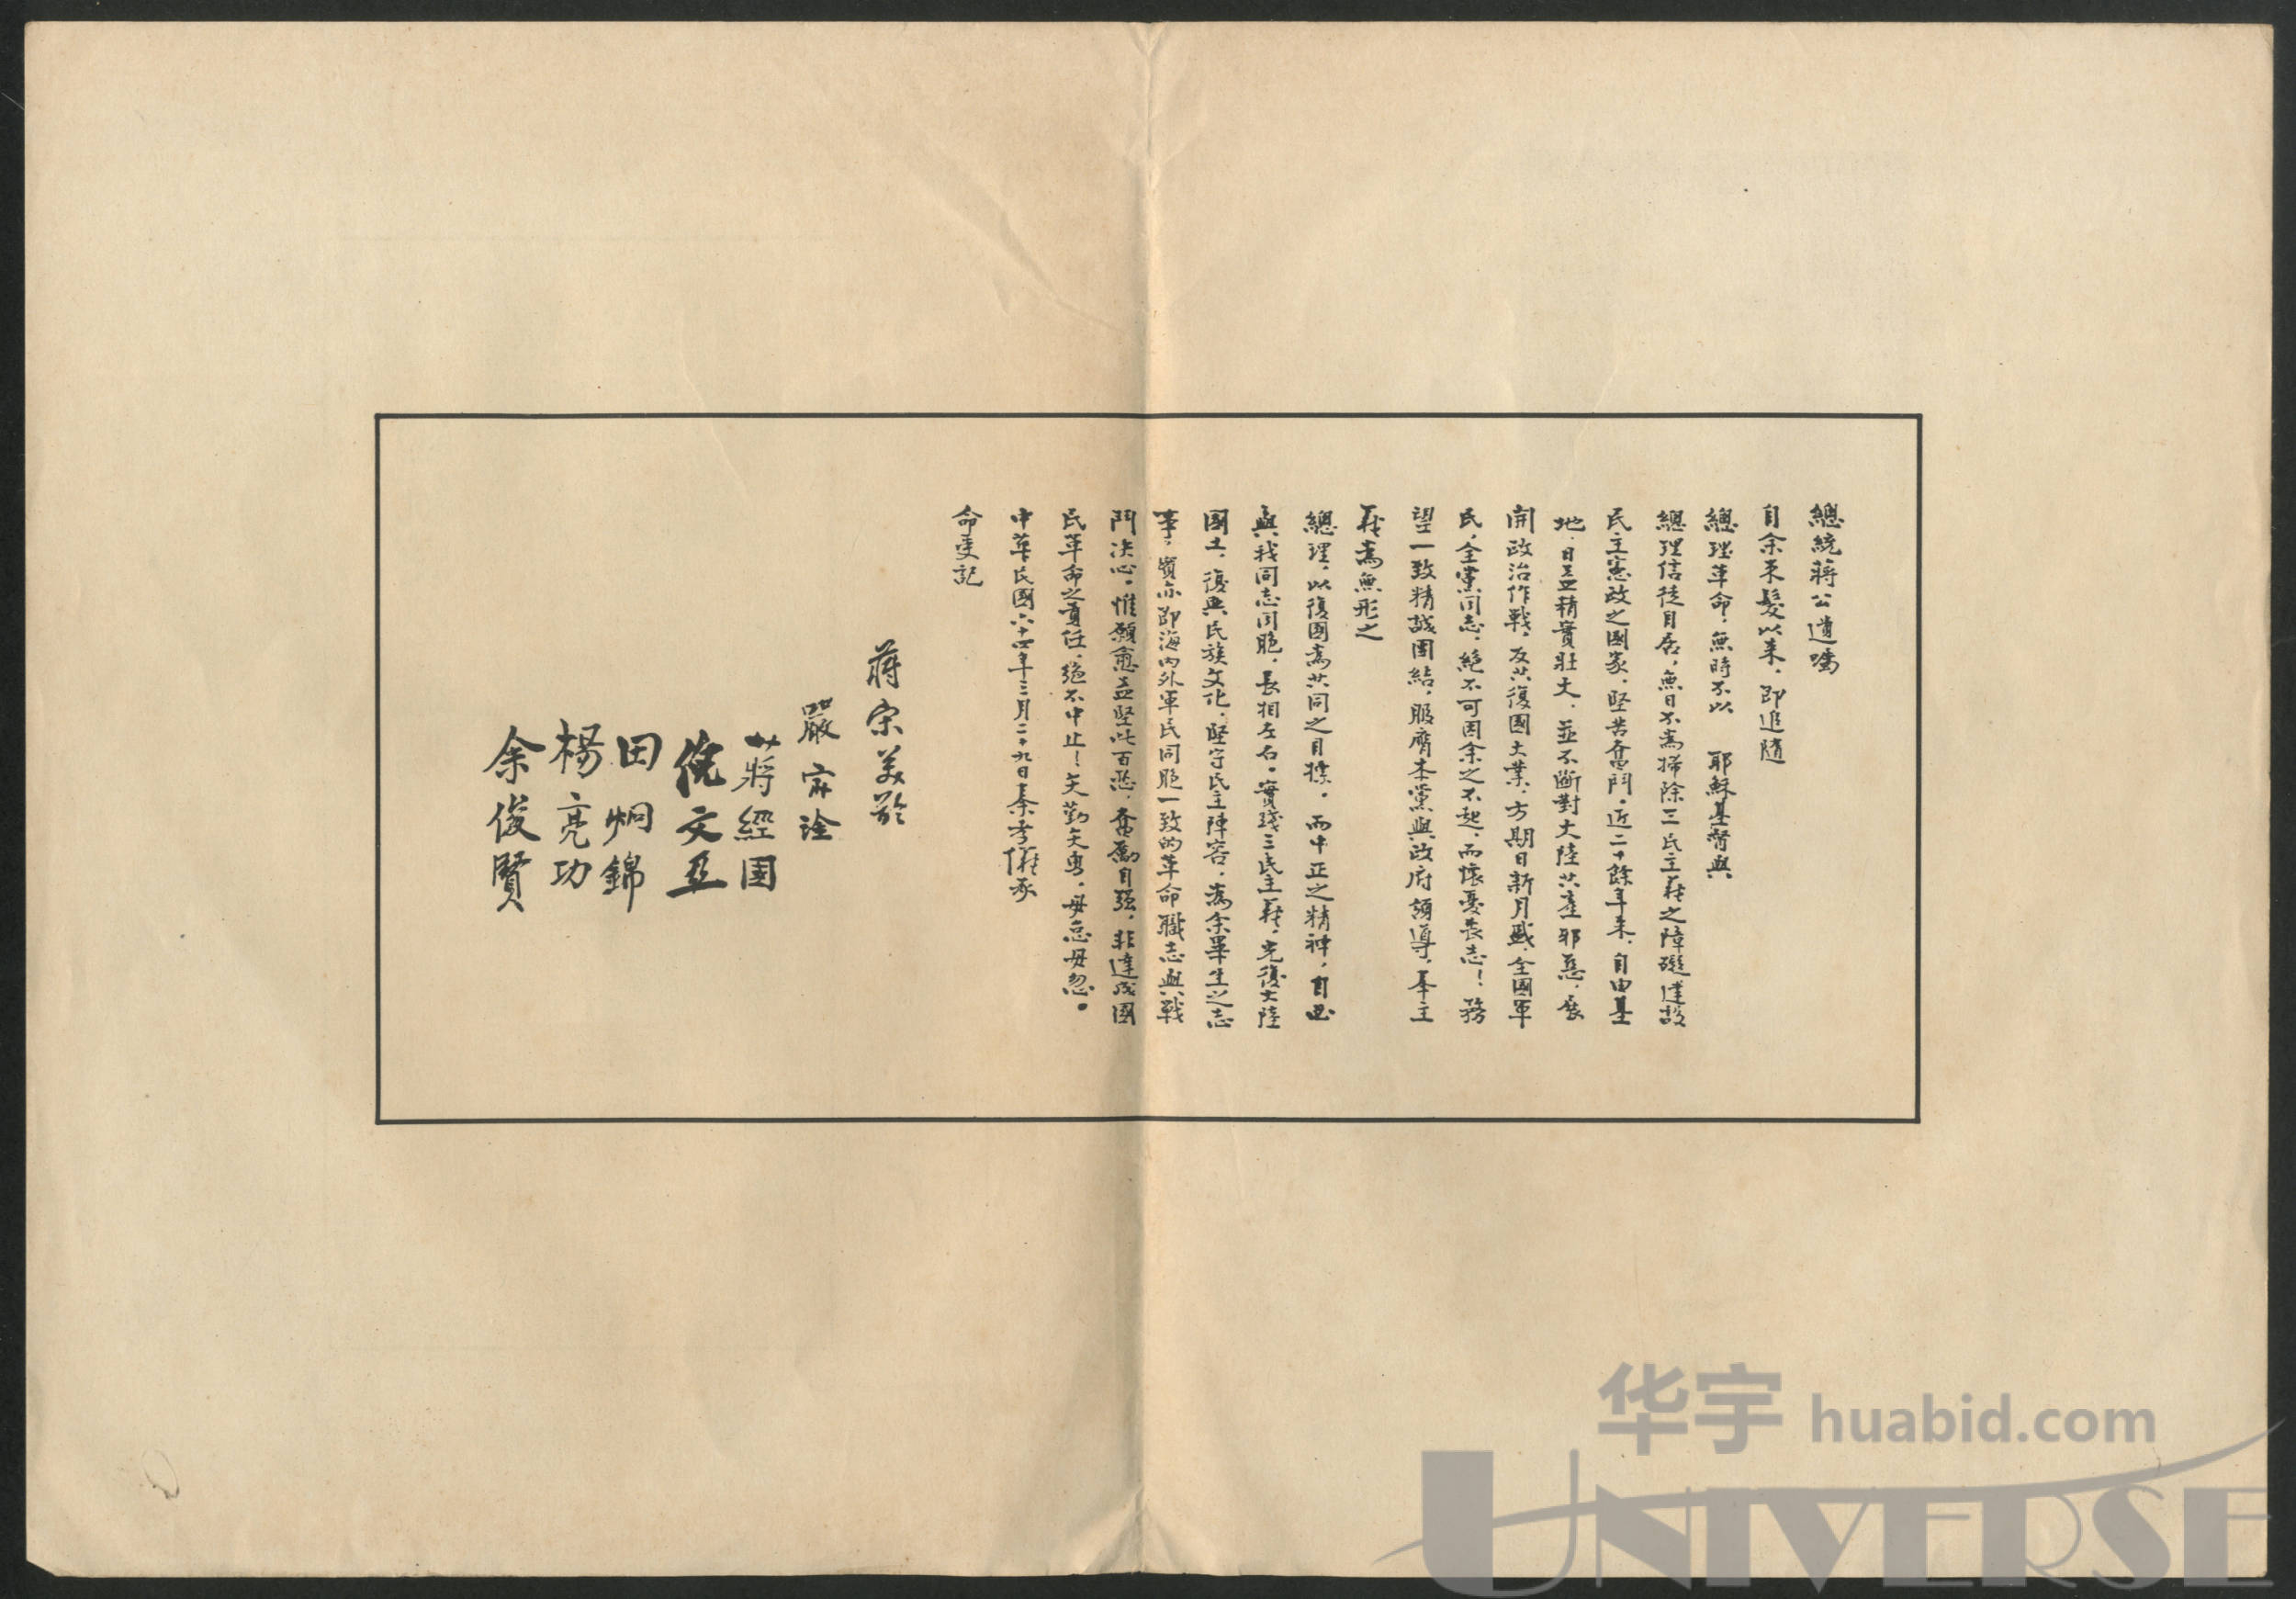 總統蔣公遺囑
自余束髮以來，即追隨
總理革命，無時不以　耶穌基督與
總理信徒自居，無日不為掃除三民主義之障礙建設
民主憲政之國家，堅苦奮鬥。近二十餘年來，自由基
地，日益精實壯大，並不斷對大陸共產邪惡，展
開政治作戰，反共復國大業，方期日新月盛，全國軍
民，全黨同志，絕不可因余之不起，而懷憂喪志！務
望一致精誠團結，服膺本黨與政府領導，奉主
義為無形之
總理，以復國為共同之目標。而中正之精神，自必
與我同志同胞，長相左右。實踐三民主義，光復大陸
國土，復興民族文化，堅守民主陣容，為余畢生之志
事，實亦即海內外軍民同胞一致的革命職志與戰
鬥決心。惟願愈益堅此百忍，奮勵自強，非達成國
民革命之責任，絕不中止！矢勤矢勇，毋怠毋忽。
中華民國六十四年三月二十九日秦孝儀承
命受記
蔣宋美齡
嚴家淦
蔣經國
倪文亞
田炯錦
楊亮功
余俊賢
华宇 huabid.com
UNIVERSE